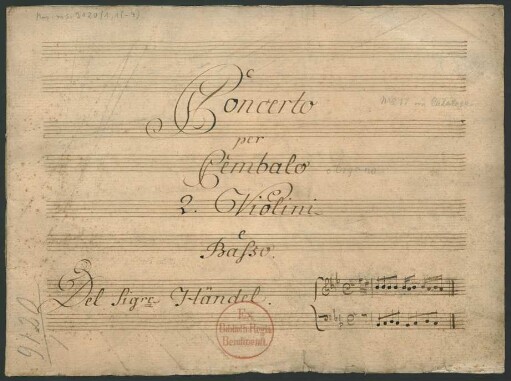 Concerto
per
Cembalo
2. Violini
e
Baßo.
Del Sigre Händel.
Ex
Biblioth. Regia
Berolinensi.
9132